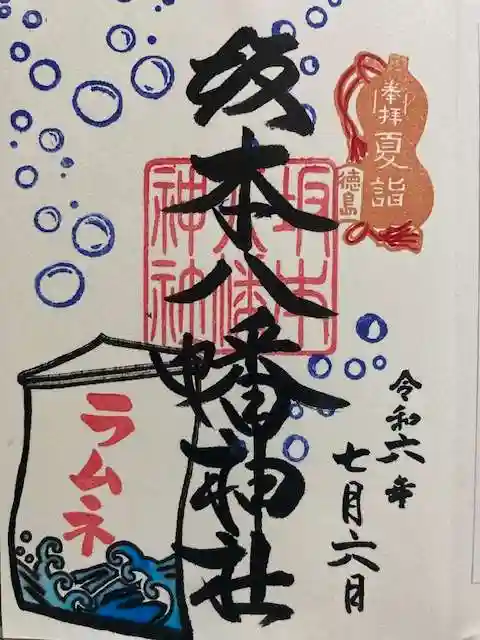 奉拝
夏詣
徳島
坂本八幡神社
坂本
八幡
神社
令和六年
七月六日
ラムネ